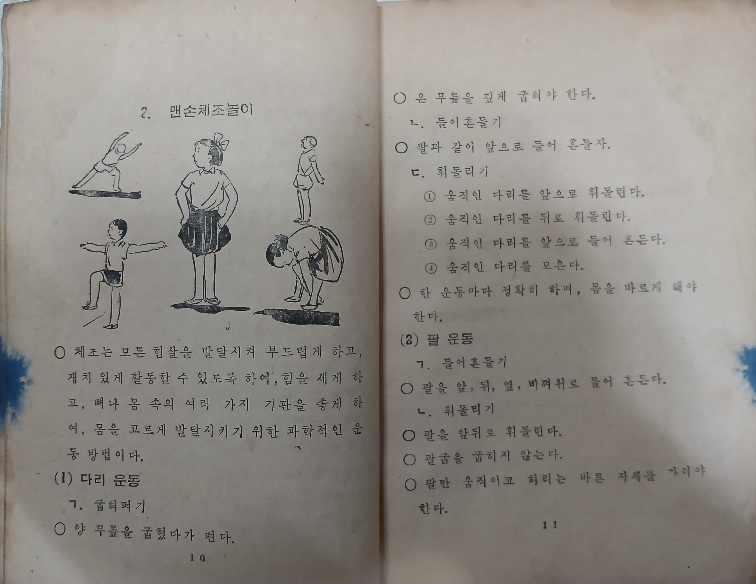 2. 맨손체조놀이
○ 체조는 모든 힘살을 발달시켜 부드럽게 하고,
재치 있게 활동할 수 있도록 하여, 힘을 세게 하
고, 뼈나 몸 속의 여러 가지 기관을 좋게 하
여, 몸을 고르게 발달시키기 위한 과학적인 운
동 방법이다.
(1) 다리 운동
ㄱ. 굽혀펴기
○ 양 무릎을 굽혔다가 편다.
10
○ 온 무릎을 깊게 굽혀야 한다.
ㄴ. 들어흔들기
○ 팔과 같이 앞으로 들어 흔들자.
ㄷ. 휘돌리기
① 움직인 다리를 앞으로 휘돌린다.
② 움직인 다리를 뒤로 휘돌린다.
③ 움직인 다리를 앞으로 들어 흔든다.
④ 움직인 다리를 모은다.
○ 한 운동마다 정확히 하며, 몸을 바르게 해야
한다.
(2) 팔 운동
ㄱ. 들어흔들기
○ 팔을 앞, 뒤, 옆, 비껴위로 들어 흔든다.
ㄴ. 휘돌리기
○ 팔을 앞뒤로 휘돌린다.
○ 팔굽을 굽히지 않는다.
○ 팔만 움직이고 허리는 바른 자세를 가져야
한다.
11